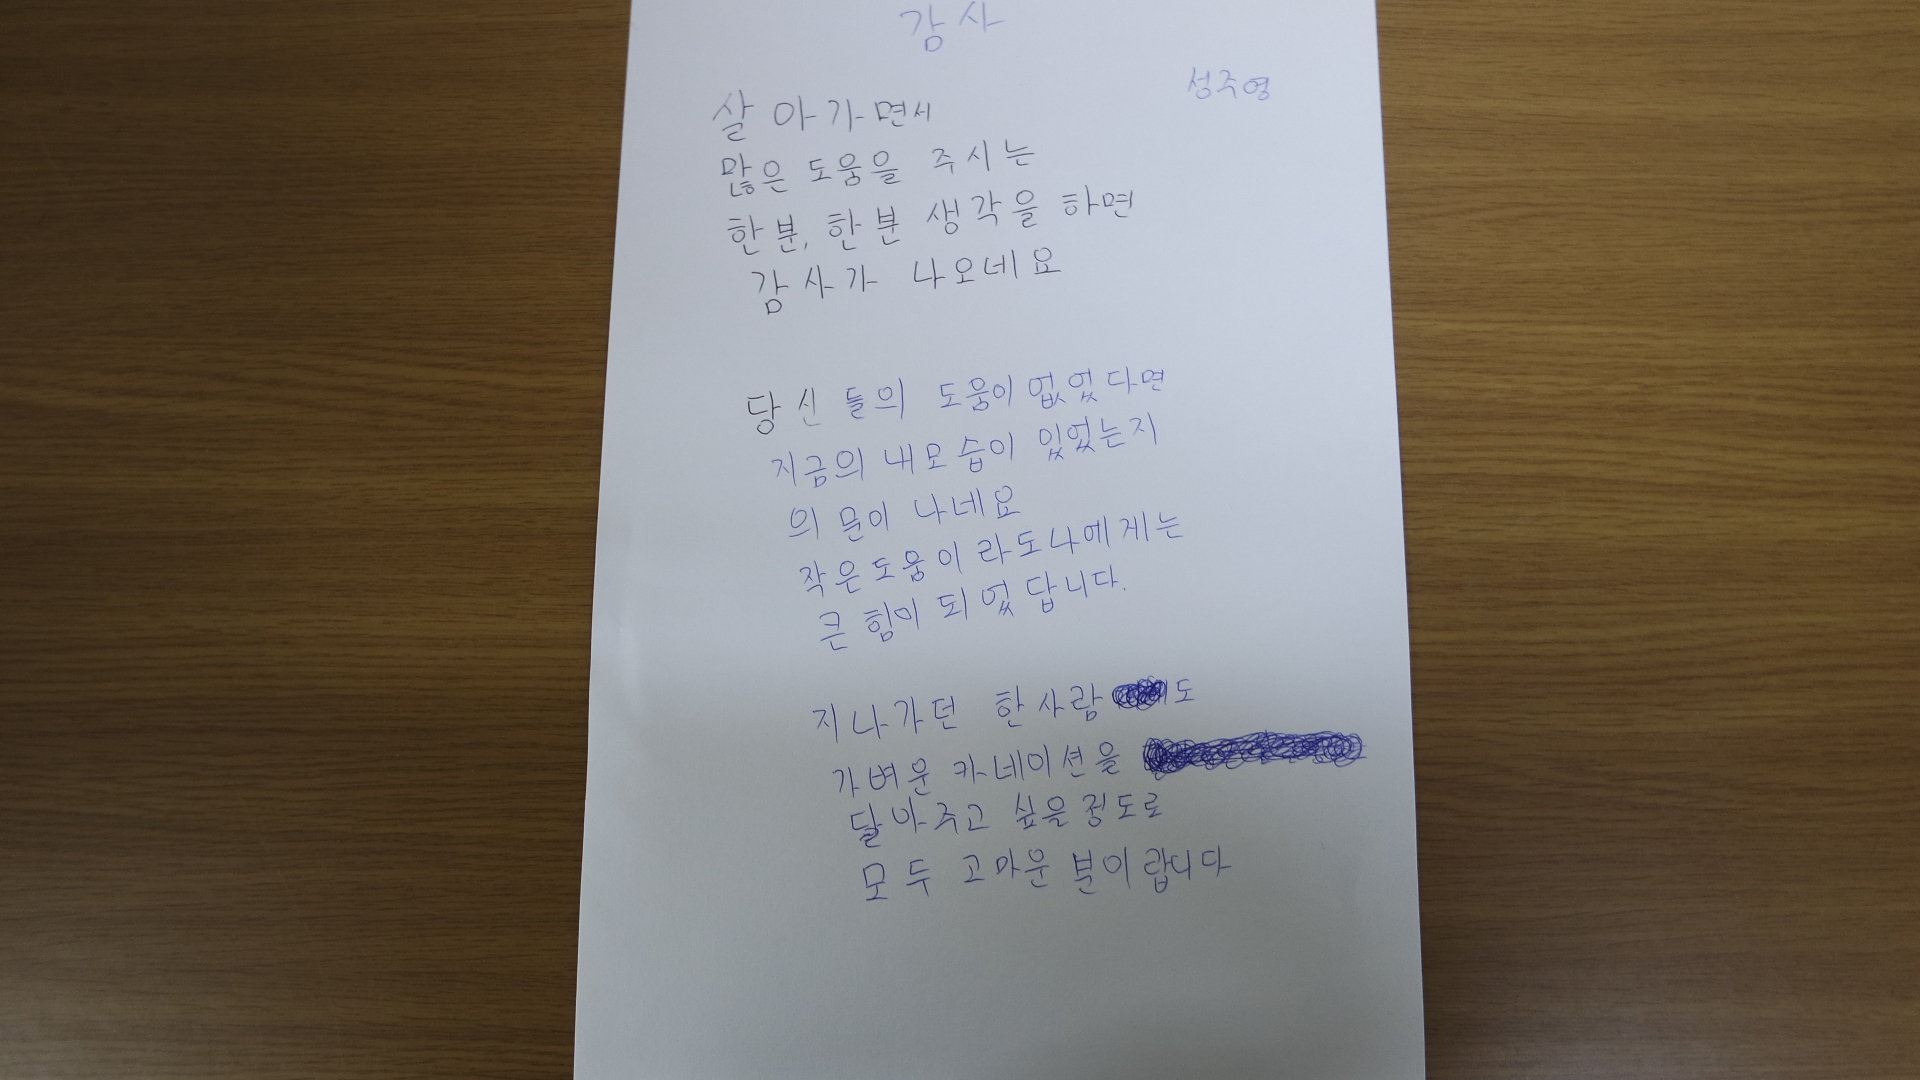 감사
성주영
살아가면서
많은 도움을 주시는
한분, 한분 생각을 하면
감사가 나오네요
당신들의 도움이 없었다면
지금의 내모습이 있었는지
의문이 나네요
작은도움이라도나에게는
큰 힘이 되었답니다.
지나가던 한사람 도
가벼운 카네이션을
달아주고 싶을정도로
모두 고마운 분이랍니다